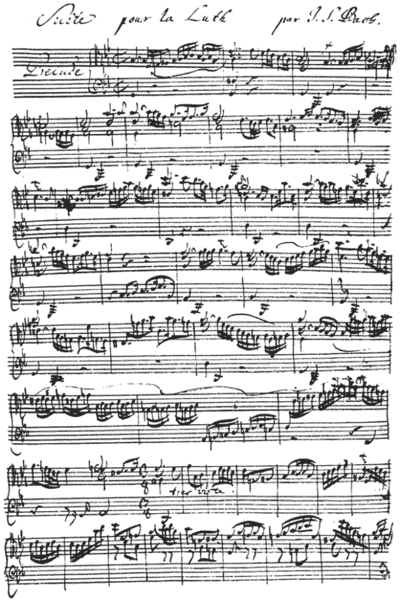 Suite pour la Luth par J. S. Bach.
Prelude
tres viste.